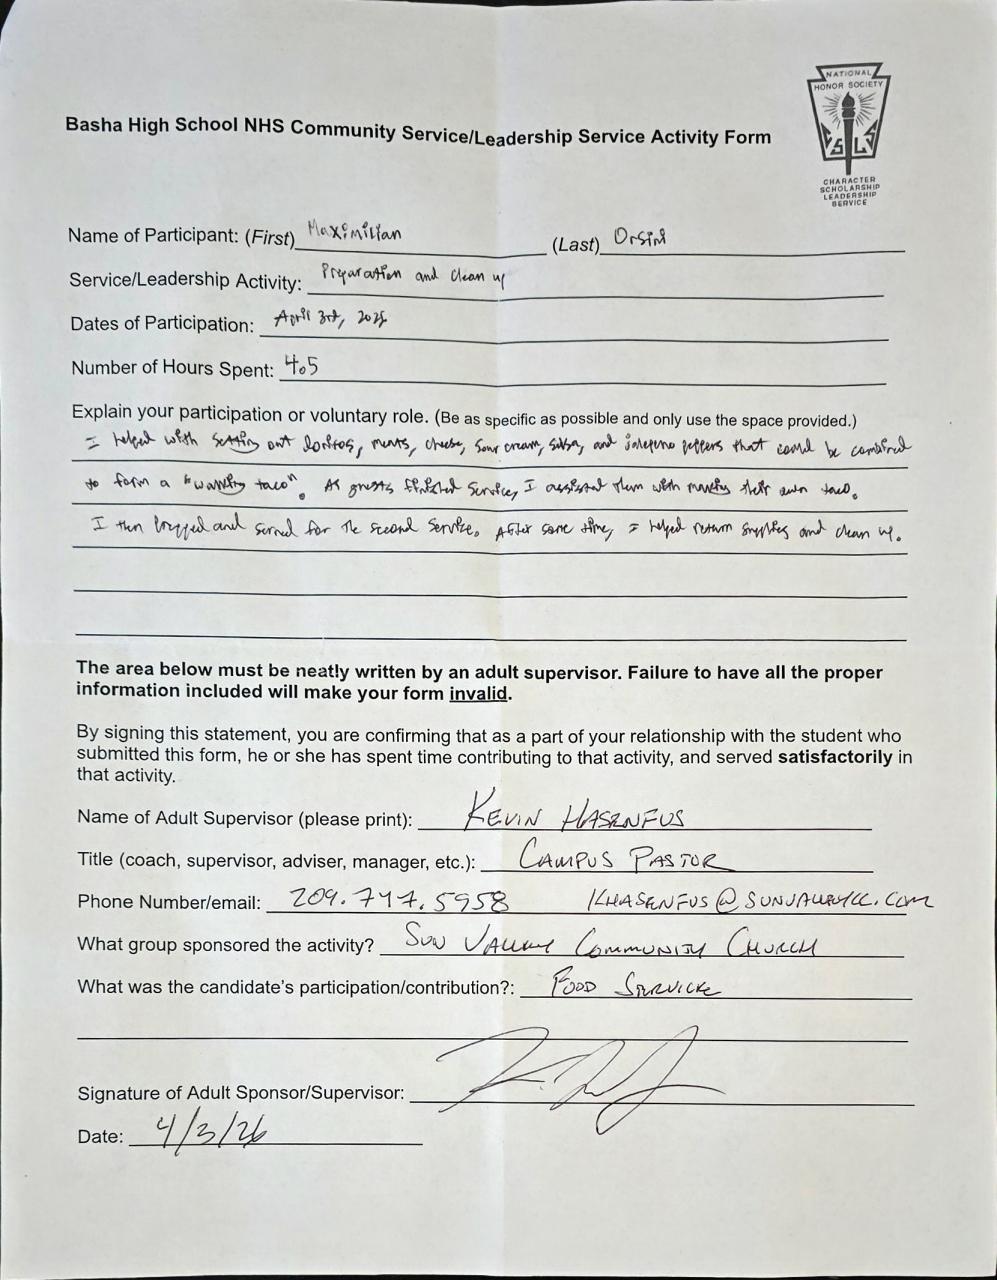 NATIONAL
HONOR SOCIETY
CHARACTER
SCHOLARSHIP
LEADERSHIP
SERVICE
Basha High School NHS Community Service/Leadership Service Activity Form
Name of Participant: (First) Maximilian (Last) Orsini
Service/Leadership Activity: Preparation and clean up
Dates of Participation: April 3rd,
Number of Hours Spent: 4.5
Explain your participation or voluntary role. (Be as specific as possible and only use the space provided.)
I helped with setting out doritos, meats, cheese, sour cream, salsa, and jalepeno peppers that could be combined
to form a "walking taco". As guests finished service, I assisted them with making their own taco.
I then prepped and served for the second service. After some time, I helped return supplies and clean up.
The area below must be neatly written by an adult supervisor. Failure to have all the proper
information included will make your form invalid.
By signing this statement, you are confirming that as a part of your relationship with the student who
submitted this form, he or she has spent time contributing to that activity, and served satisfactorily in
that activity.
Name of Adult Supervisor (please print): KEVIN HASENFUS
Title (coach, supervisor, adviser, manager, etc.): CAMPUS PASTOR
Phone Number/email: 209.747.5958 KHASENFUS@SUNVALLEYCC.COM
What group sponsored the activity? SUN VALLEY COMMUNITY CHURCH
What was the candidate's participation/contribution?: FOOD SERVICE
Signature of Adult Sponsor/Supervisor:
Date: 4/3/26